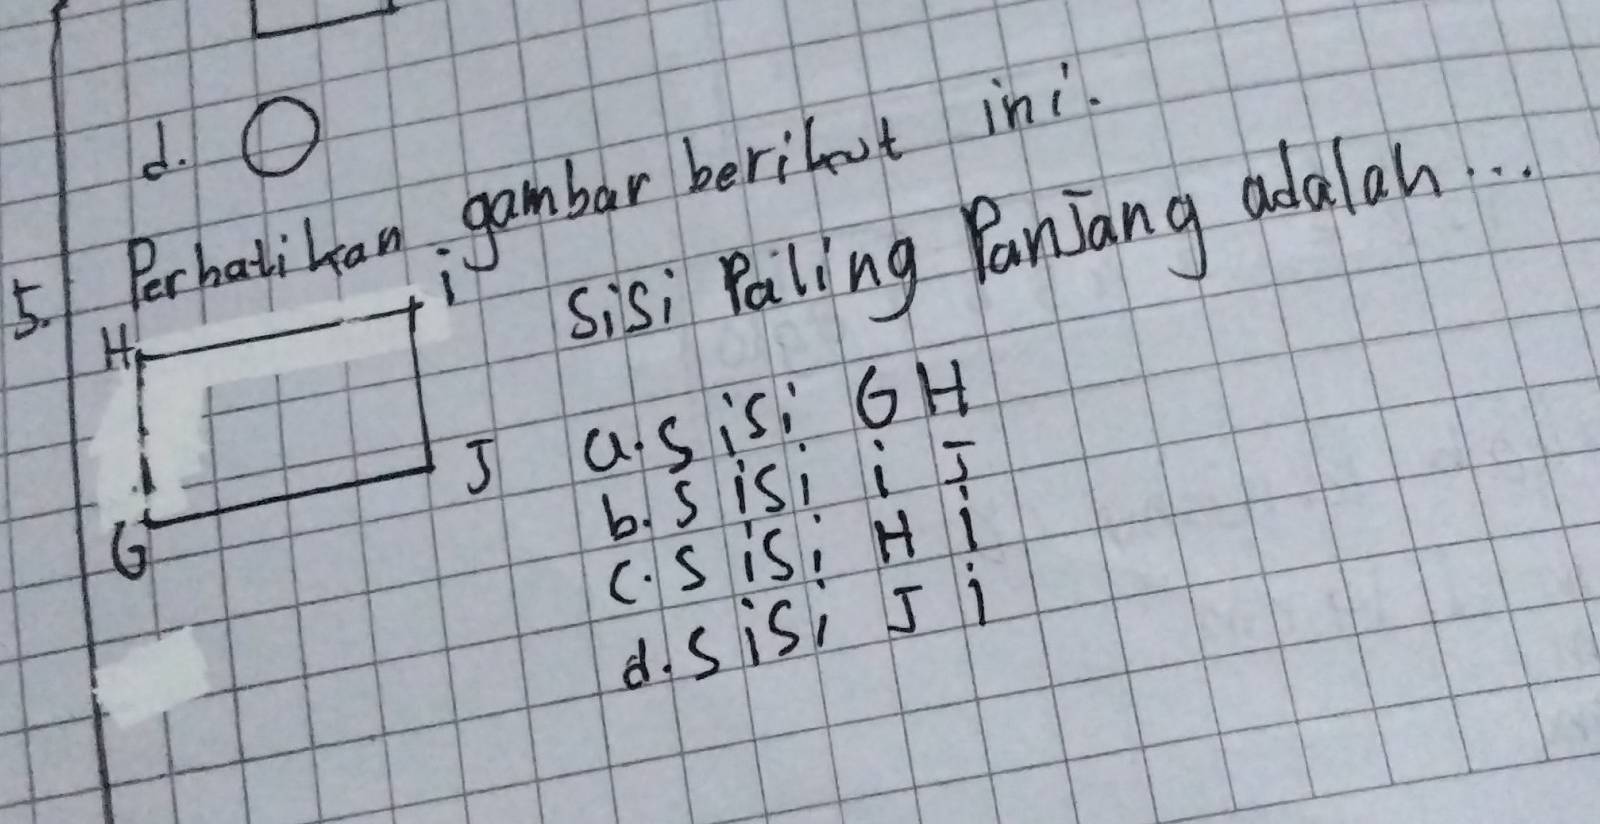 d.
5. Perhatikan gambar berikut ini.
H i
G J
Sisi Paling Panjang adalah...
a. Sisi G H
b. Sisi i J
c. Sisi H i
d. Sisi J i